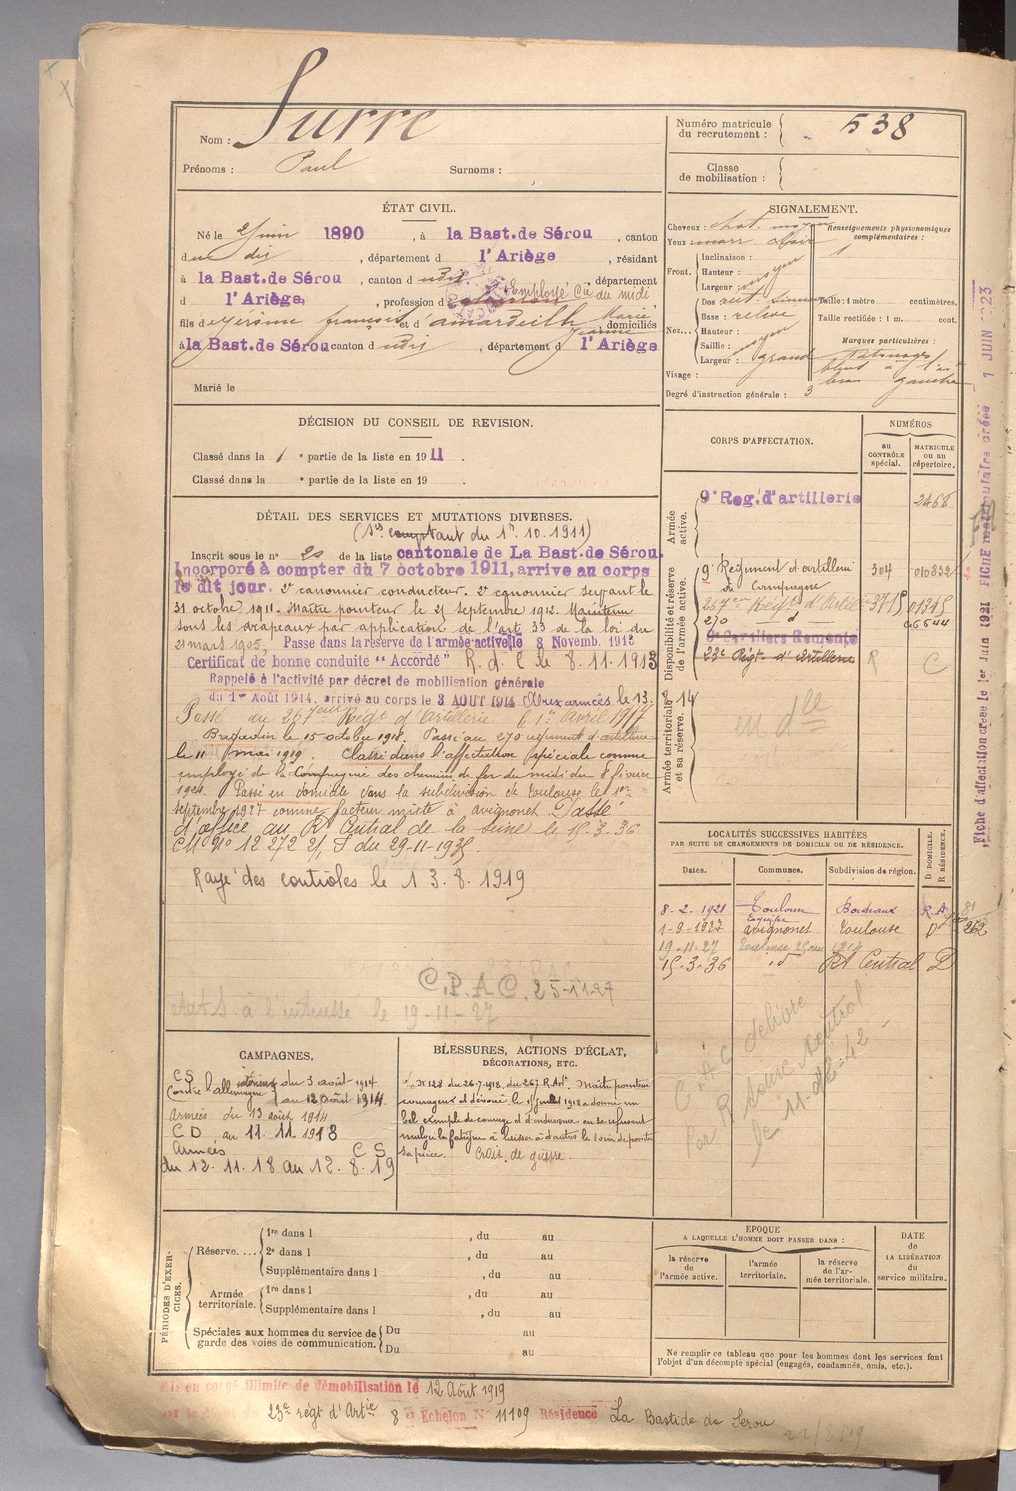 Nom : Surre
Prénoms : Paul Surnoms :
Numéro matricule du recrutement : 538
Classe de mobilisation :
ÉTAT CIVIL.
Né le 2 juin 1890, à la Bast. de Sérou, canton
du dit, département d l'Ariège, résidant
à la Bast. de Sérou, canton d udit, département
d l'Ariège, profession d Employé Cie du midi
fils d Jérome françois et d'amardeilh Marie Jeanne domiciliés
à la Bast. de Sérou canton d udit, département d l'Ariège
Marié le
SIGNALEMENT.
Cheveux : chat. moyen
Yeux : marr. clair
Front. Inclinaison :
Hauteur : moyen
Largeur :
Nez. Dos rect. sinueux
Base : relevé
Hauteur :
Saillie : moyen
Largeur : grand
Visage :
Renseignements physionomiques complémentaires :
Taille : 1 mètre centimètres.
Taille rectifiée : 1 m. cent.
Marques particulières :
tatouages
bleus à
bras gauche
Degré d'instruction générale : 3
DÉCISION DU CONSEIL DE REVISION.
Classé dans la 1e partie de la liste en 1911.
Classé dans la e partie de la liste en 19
DÉTAIL DES SERVICES ET MUTATIONS DIVERSES.
(Ses comptant du 1er. 10. 1911)
Inscrit sous le n° 20 de la liste cantonale de La Bast. de Sérou.
Incorporé à compter du 7 octobre 1911, arrive au corps
le dit jour. 2e canonnier conducteur. 2e canonnier servant le
31 octobre 1911. Maître pointeur le 25 septembre 1912. Maintenu
sous les drapeaux par application de l'art. 33 de la loi du
21 mars 1905, Passe dans la réserve de l'armée active le 8 Novemb. 1913
Certificat de bonne conduite "Accordé" R. d. C le 8. 11. 1913
Rappelé à l'activité par décret de mobilisation générale
du 1er Août 1914, arrivé au corps le 3 AOUT 1914 Aux armées le 13.
Passé au 267eme Régt d'Artillerie le 1er avril 1917
Brigadier le 15 octobre 1918. Passé au 270 régiment d'artillerie
le 11 mai 1919. Classé dans l'affectation spéciale comme
employé de la Compagnie des chemins de fer du midi du 8 février
1921. Passé en domicile dans la subdivision de Toulouse le 1er
septembre 1927 comme facteur mixte à avignonet Passé
d'office au Rt Central de la Seine le 15.3.36
CM N° 12 272 2/, S du 29-11-1935.
Rayé des contrôles le 13. 8. 1919
C. P. A. C. 25-11-27
à l'intéressé le 19-11-27
CORPS D'AFFECTATION.
NUMÉROS
AU CONTRÔLE SPÉCIAL.
MATRICULE OU AU RÉPERTOIRE.
Armée active.
9e Reg. d'artillerie 2468
Disponibilité et réserve de l'armée active.
9e Régiment d'artillerie de Campagne 304 010832
267eme Régt d'Artie 3715 01315
270 d 06544
Cavaliers Remonte
23e Régt d'Artillerie R C
Armée territoriale et sa réserve.
LOCALITÉS SUCCESSIVES HABITÉES
PAR SUITE DE CHANGEMENTS DE DOMICILE OU DE RÉSIDENCE.
Dates. Communes. Subdivision de région. D DOMICILE. R RÉSIDENCE.
8-2. 1921 Bordeaux R.A.
1-9-1927 avignonet Toulouse D
19-11-27 Toulouse
15-3-36 id Rt Central D
C.A.C délivré
par R Seine Central
le 11-42
CAMPAGNES.
CS
Contre l'allemagne intérieur du 3 août 1914
au 12 août 1914
Armées du 13 août 1914
C D au 11. 11. 1918
Armées C S
du 12. 11. 18 au 12. 8. 19
BLESSURES, ACTIONS D'ÉCLAT,
DÉCORATIONS, ETC.
N° 128 du 26.7.1918, du 267 R. Art. Maître pointeur
courageux et dévoué, le juillet 1918 a donné un
bel exemple de courage et d'endurance en se refusant
malgré la fatigue à laisser à d'autres le soin de pointer
sa pièce. Croix de guerre.
PÉRIODES D'EXERCICES.
Réserve.... 1re dans l , du au
2e dans l , du au
Supplémentaire dans l , du au
Armée territoriale. 1re dans l , du au
Supplémentaire dans l , du au
Spéciales aux hommes du service de garde des voies de communication. Du au
Du au
EPOQUE
A LAQUELLE L'HOMME DOIT PASSER DANS :
la réserve de l'armée active.
l'armée territoriale.
la réserve de l'armée territoriale.
DATE DE LA LIBÉRATION du service militaire.
Ne remplir ce tableau que pour les hommes dont les services font
l'objet d'un décompte spécial (engagés, condamnés, omis, etc.).
Mis en congé illimité de démobilisation le 12 Août 1919
par le Dépôt du 23e régt d'Artie 8e Echelon N° 11109 Résidence La Bastide de Serou
Fiche d'affectation créée le 1er Juin 1921